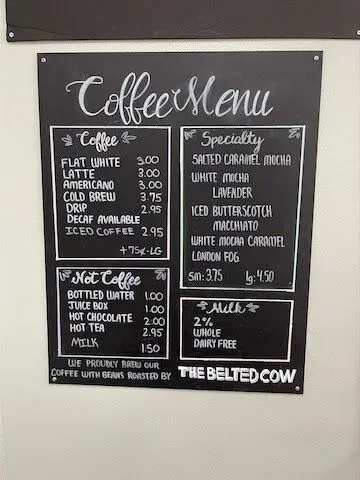 Coffee Menu
Coffee
FLAT WHITE 3.00
LATTE 3.00
AMERICANO 3.00
COLD BREW 3.75
DRIP 2.95
DECAF AVAILABLE
ICED COFFEE 2.95
+75¢-LG
Not Coffee
BOTTLED WATER 1.00
JUICE BOX 1.00
HOT CHOCOLATE 2.00
HOT TEA 2.95
MILK 1.50
Specialty
SALTED CARAMEL MOCHA
WHITE MOCHA
LAVENDER
ICED BUTTERSCOTCH
MACCHIATO
WHITE MOCHA CARAMEL
LONDON FOG
sm: 3.75 lg: 4.50
Milk
2%
WHOLE
DAIRY FREE
WE PROUDLY BREW OUR
COFFEE WITH BEANS ROASTED BY THE BELTED COW